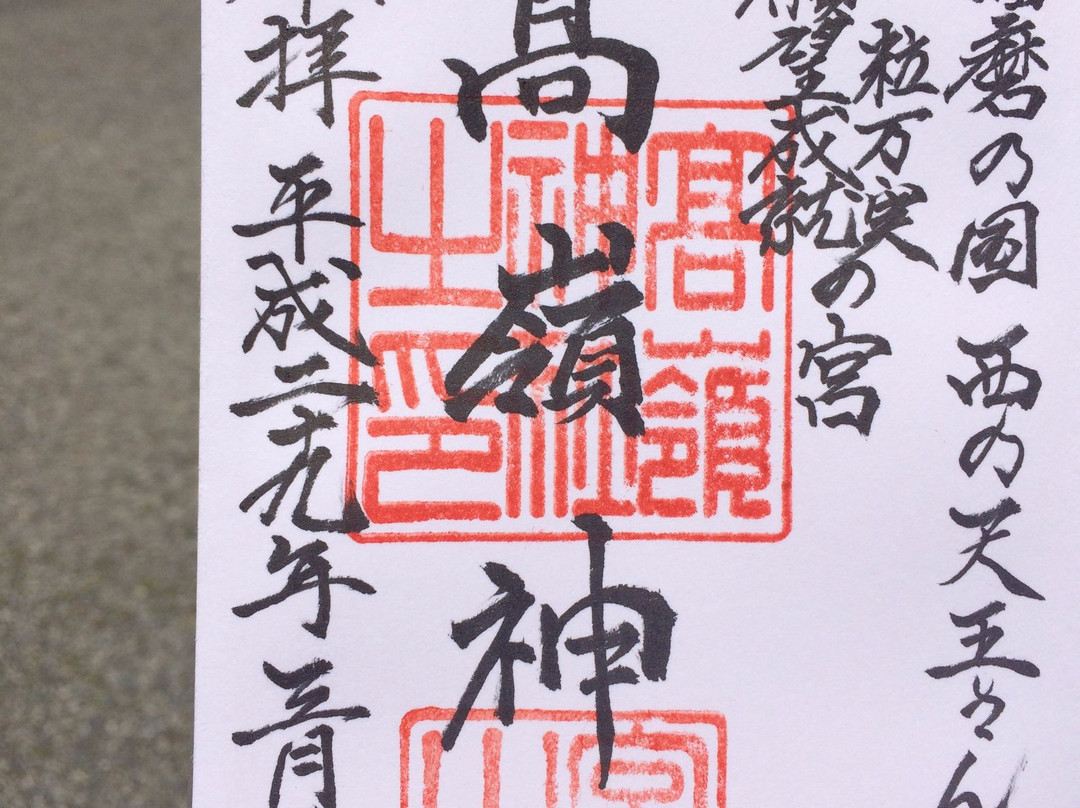 磨の国 西の天王さん
粒万実
願望成就
の宮
高嶺神
高嶺
神社
之印
拝 平成二十九年 三月